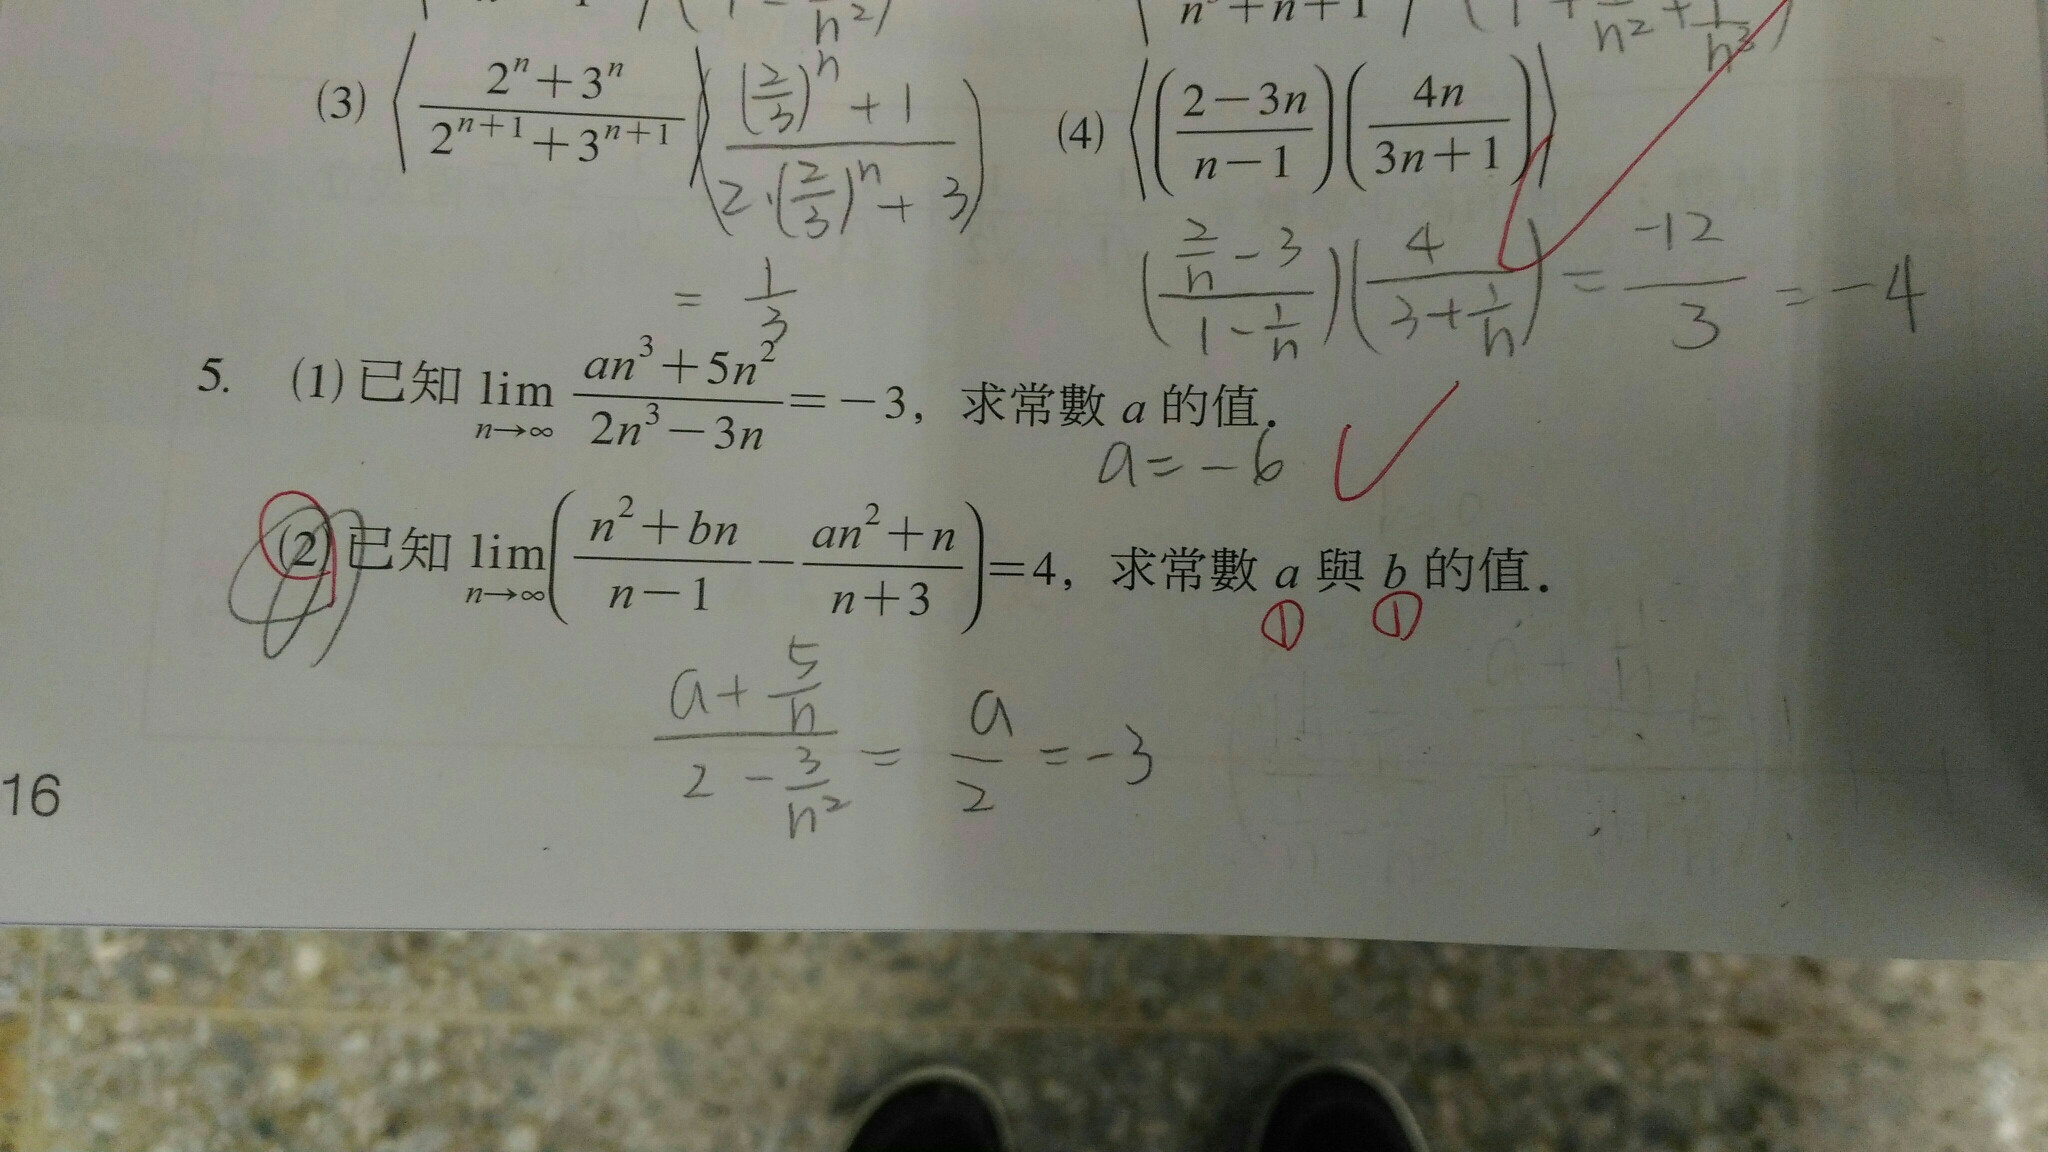 (3) ⟨ (2^n + 3^n) / (2^{n+1} + 3^{n+1}) ⟩ ( ((2/3)^n + 1) / (2·(2/3)^n + 3) )
= 1/3
(4) ⟨ ((2 − 3n) / (n − 1)) (4n / (3n + 1)) ⟩
((2/n − 3) / (1 − 1/n)) (4 / (3 + 1/n)) = −12/3 = −4
5. (1) 已知 lim_{n→∞} (an^3 + 5n^2) / (2n^3 − 3n) = −3, 求常數 a 的值.
a = −6
(2) 已知 lim_{n→∞} ( (n^2 + bn) / (n − 1) − (an^2 + n) / (n + 3) ) = 4, 求常數 a 與 b 的值.
① ①
(a + 5/n) / (2 − 3/n^2) = a/2 = −3
16